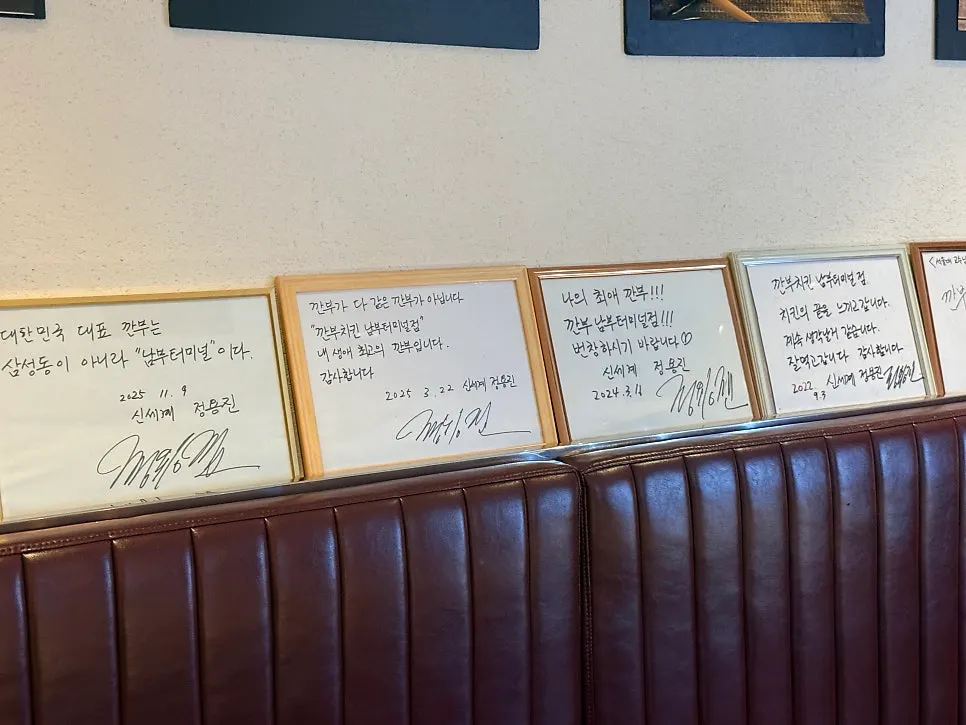 대한민국 대표 깐부는
삼성동이 아니라 "남부터미널"이다.
2025 11. 9
신세계 정용진
깐부가 다 같은 깐부가 아닙니다
"깐부치킨 남부터미널점"
내 생애 최고의 깐부입니다.
감사합니다
2025 3. 22 신세계 정용진
나의 최애 깐부!!!
깐부 남부터미널점!!!
번창하시기 바랍니다♡
신세계 정용진
2024. 3.
깐부치킨 남부터미널점
치킨의 끝을 느끼고갑니다.
계속 생각날거 같습니다.
잘먹고갑니다 감사합니다.
2022. 신세계 정용진
9.3
깐부